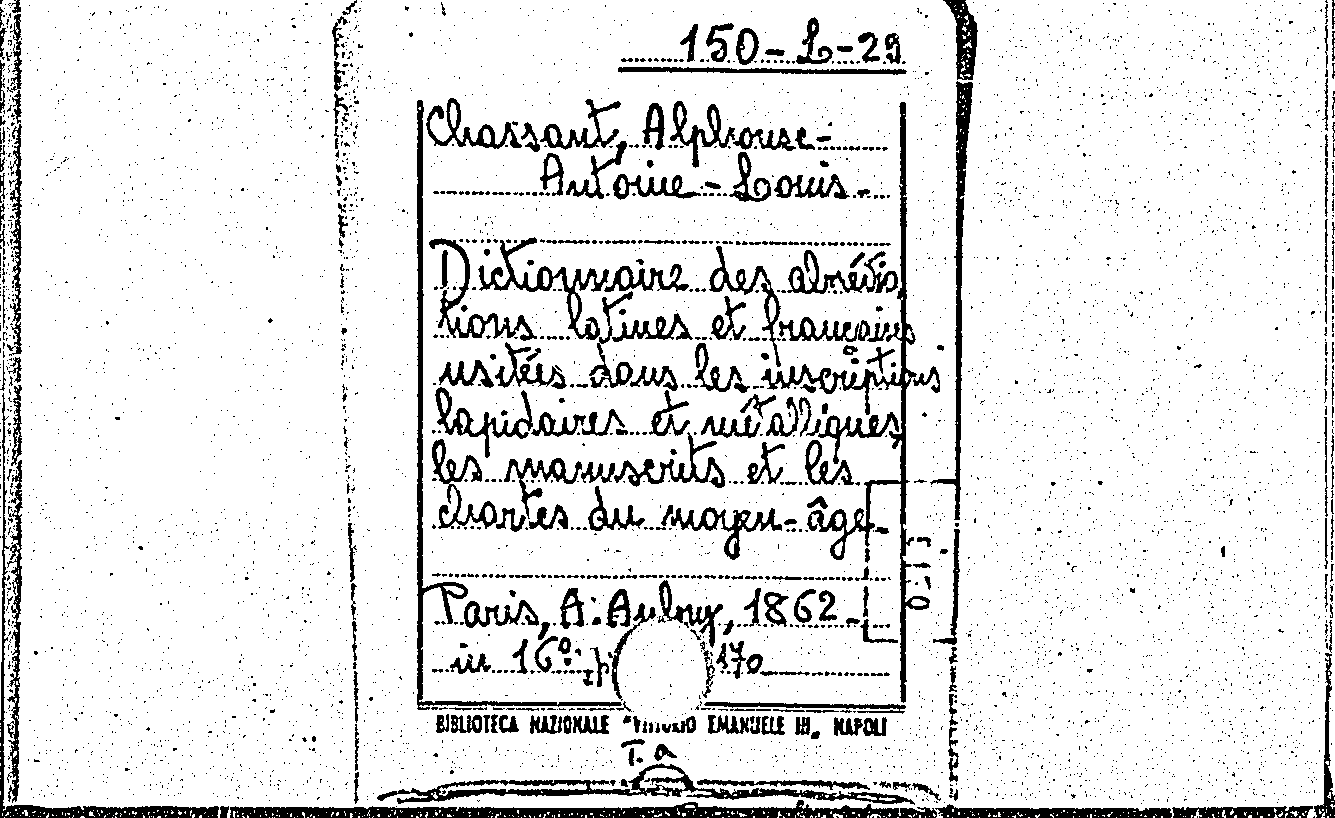 150-L-29
Chassant, Alphonse-
Antoine-Louis-
Dictionnaire des abrévia
tions latines et françaises
usitées dans les inscriptions
lapidaires et métalliques,
les manuscrits et les
chartes du moyen-âge-
Paris, A. Aubry, 1862-
in 16º. 170
BIBLIOTECA NAZIONALE "VITTORIO EMANUELE III, NAPOLI
T. a